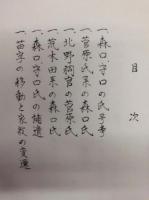 目次
一、森口守口の氏子考
一、菅原氏系の森口氏
一、北野祠官の菅原氏
一、荒木田系の森口氏
一、森口守口氏の補遺
一、苗字の移動と家紋の変遷